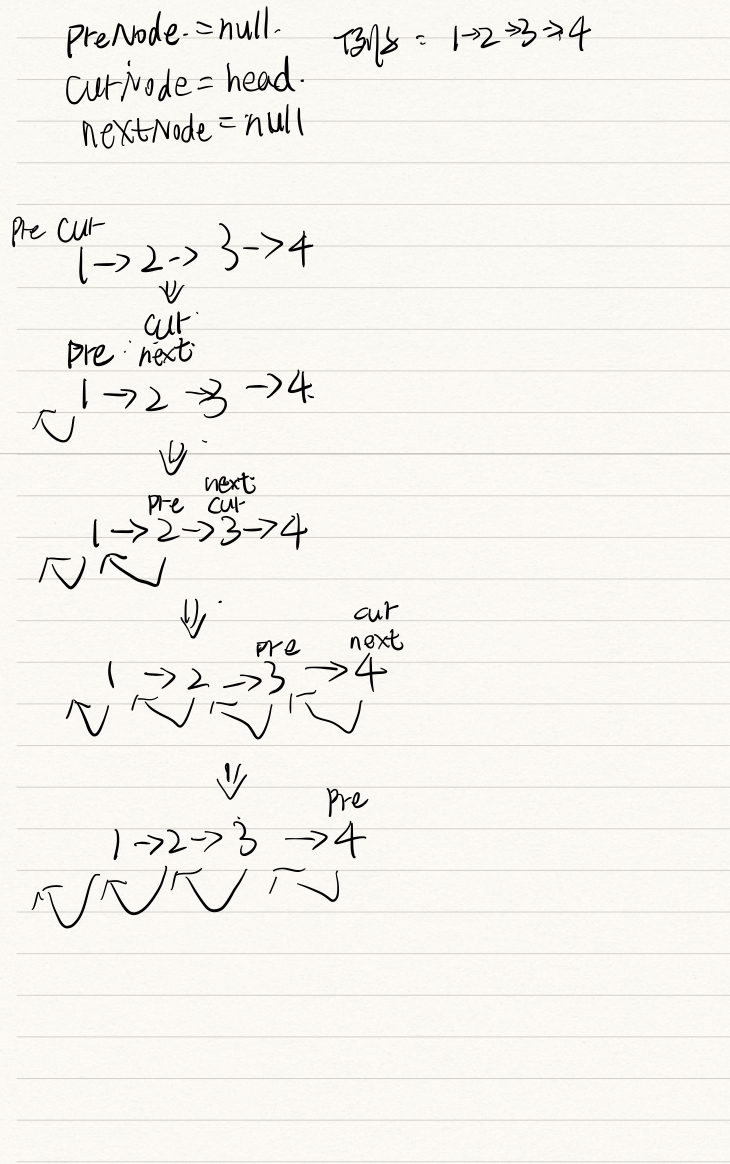 preNode = null.
例如 = 1->2->3->4
curNode = head.
nextNode = null
pre cur
1->2->3->4
cur
pre next
1->2->3->4
next
pre cur
1->2->3->4
cur
pre next
1->2->3->4
pre
1->2->3->4